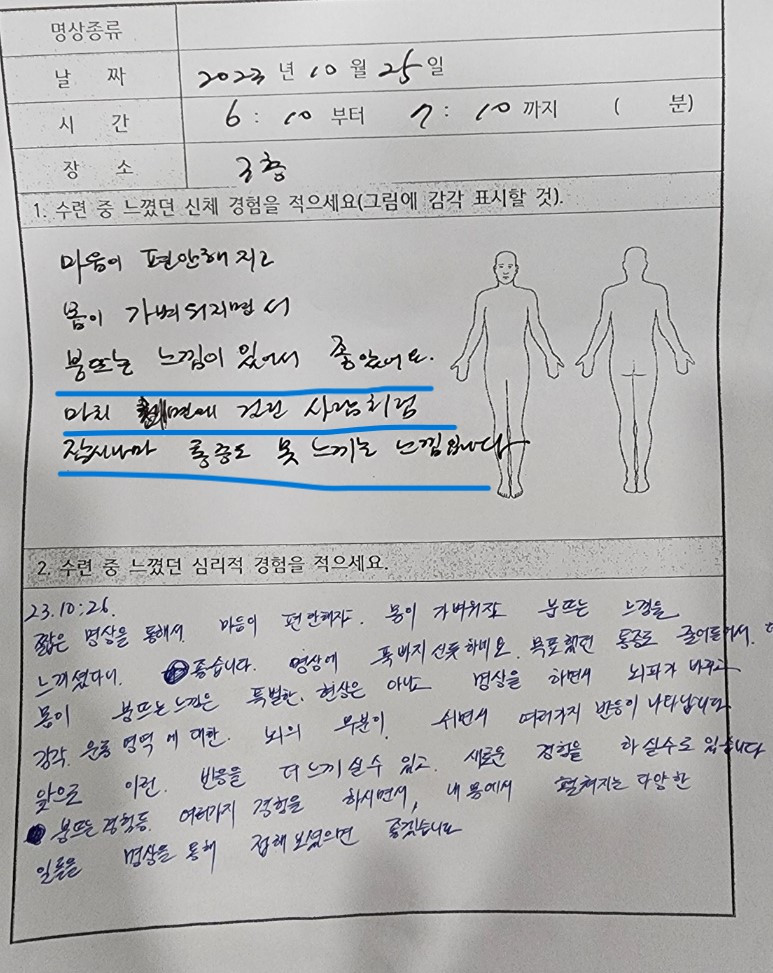 명상종류
날 짜 2023 년 10 월 25 일
시 간 6 : 10 부터 7 : 10 까지 ( 분)
장 소 3층
1. 수련 중 느꼈던 신체 경험을 적으세요(그림에 감각 표시할 것).
마음이 편안해지고
몸이 가벼워지면서
붕뜨는 느낌이 있어서 좋았어요.
마치 최면에 걸린 사람처럼
잠시나마 통증도 못 느끼는 느낌입니다
2. 수련 중 느꼈던 심리적 경험을 적으세요.
23.10:26.
짧은 명상을 통해서 마음이 편안해지고. 몸이 가벼워지고 붕뜨는 느낌을
느끼셨다니. 좋습니다. 명상에 푹빠지신듯 하네요. 목표했던 통증도 줄어들어서.
몸이 붕뜨는 느낌은 특별한. 현상은 아니고 명상을 하면서 뇌파가 바뀌고
감각. 운동 영역에 대한. 뇌의 부분이. 쉬면서 여러가지 반응이 나타납니다
앞으로 이런. 반응을 더 느끼실수 있고. 새로운 경험을 하실수도 있습니다
붕뜨는 경험등. 여러가지 경험을 하시면서, 내 몸에서 펼쳐지는 다양한
일들을 명상을 통해 접해 보셨으면 좋겠습니다